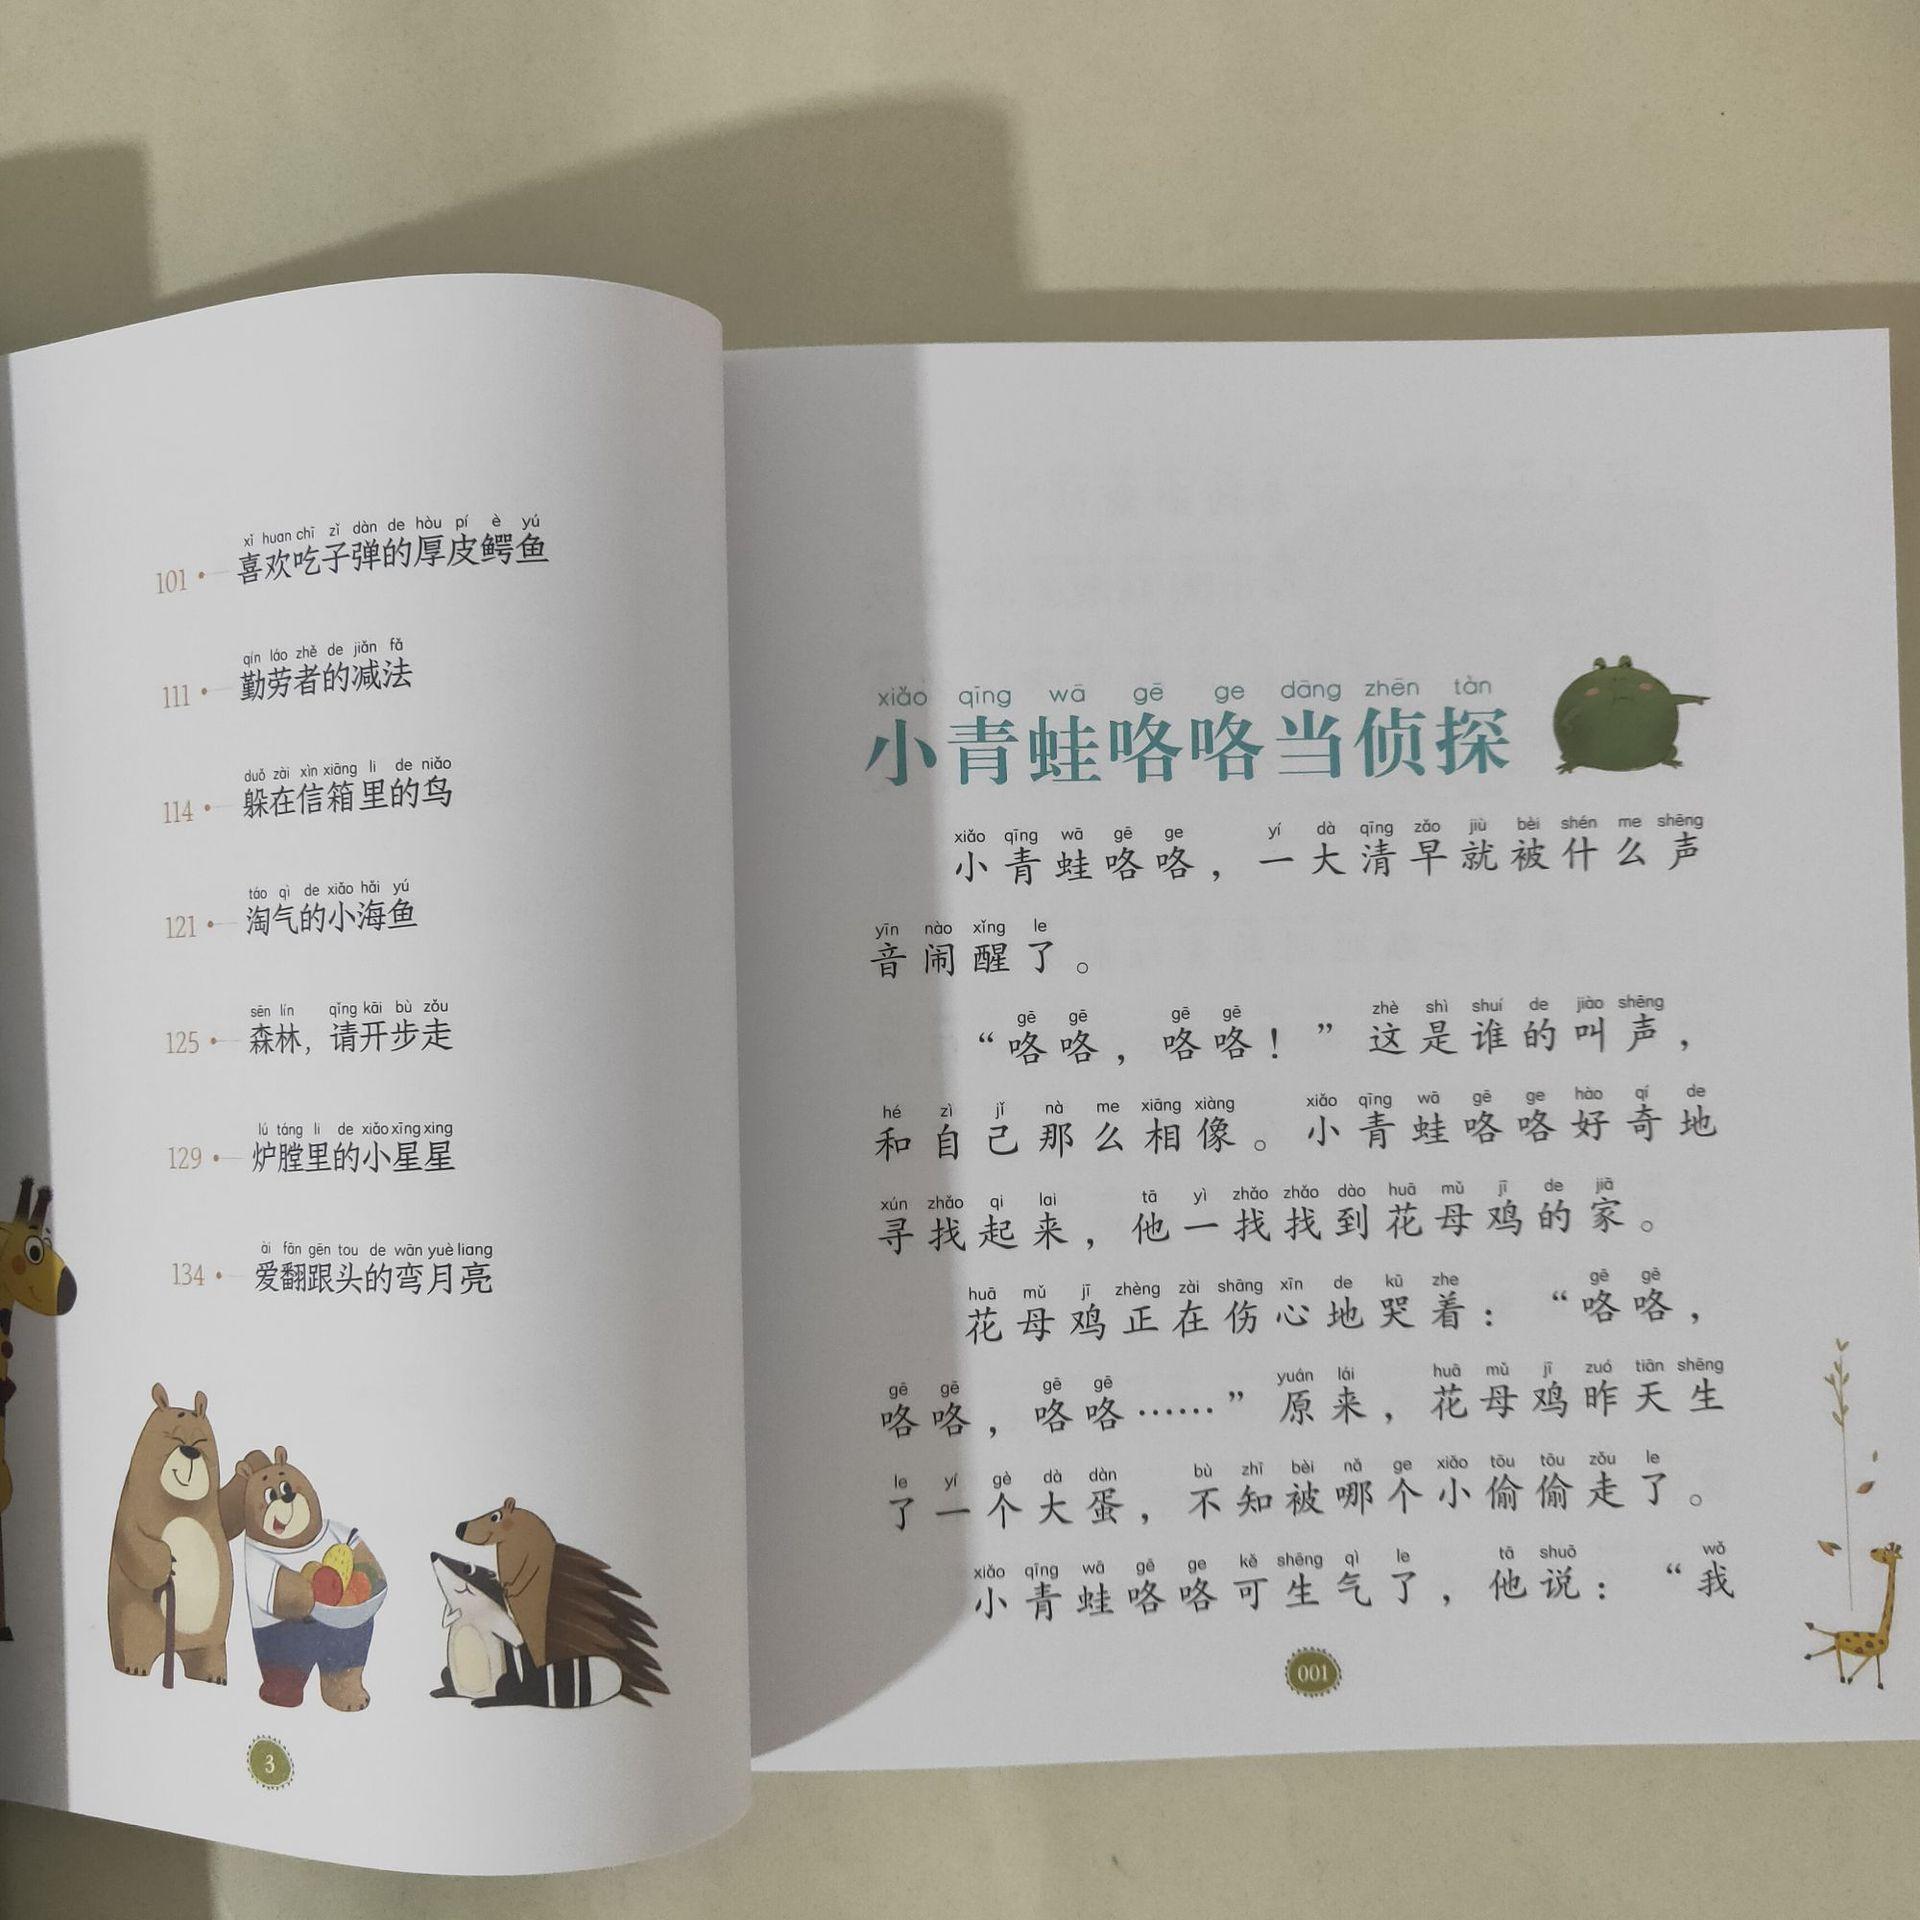 xǐ huan chī zǐ dàn de hòu pí è yú
101 喜欢吃子弹的厚皮鳄鱼
qín láo zhě de jiǎn fǎ
111 勤劳者的减法
duǒ zài xìn xiāng li de niǎo
114 躲在信箱里的鸟
táo qì de xiǎo hǎi yú
121 淘气的小海鱼
sēn lín qǐng kāi bù zǒu
125 森林，请开步走
lú táng li de xiǎo xīng xing
129 炉膛里的小星星
ài fān gēn tou de wān yuè liang
134 爱翻跟头的弯月亮
3
xiǎo qīng wā gē ge dāng zhēn tàn
小青蛙咯咯当侦探
xiǎo qīng wā gē ge yí dà qīng zǎo jiù bèi shén me shēng
小青蛙咯咯，一大清早就被什么声
yīn nào xǐng le
音闹醒了。
gē gē gē gē zhè shì shuí de jiào shēng
“咯咯，咯咯！”这是谁的叫声，
hé zì jǐ nà me xiāng xiàng xiǎo qīng wā gē ge hào qí de
和自己那么相像。小青蛙咯咯好奇地
xún zhǎo qi lai tā yì zhǎo zhǎo dào huā mǔ jī de jiā
寻找起来，他一找找到花母鸡的家。
huā mǔ jī zhèng zài shāng xīn de kū zhe gē gē
花母鸡正在伤心地哭着：“咯咯，
gē gē gē gē yuán lái huā mǔ jī zuó tiān shēng
咯咯，咯咯……”原来，花母鸡昨天生
le yí gè dà dàn bù zhī bèi nǎ ge xiǎo tōu tōu zǒu le
了一个大蛋，不知被哪个小偷偷走了。
xiǎo qīng wā gē ge kě shēng qì le tā shuō wǒ
小青蛙咯咯可生气了，他说：“我
001